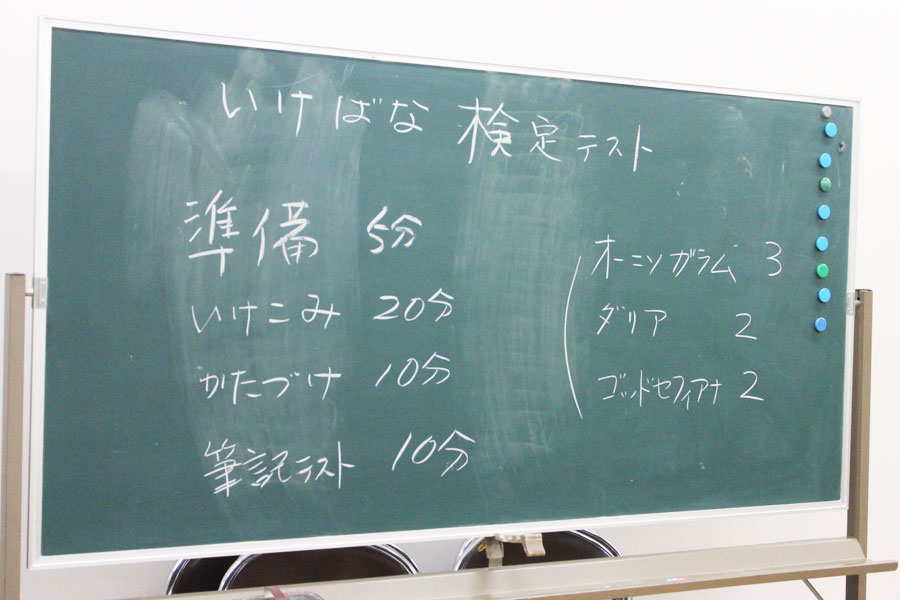 いけばな 検定テスト
準備 5分
いけこみ 20分
かたづけ 10分
筆記テスト 10分
オーニソガラム 3
ダリア 2
ゴッドセフィアナ 2